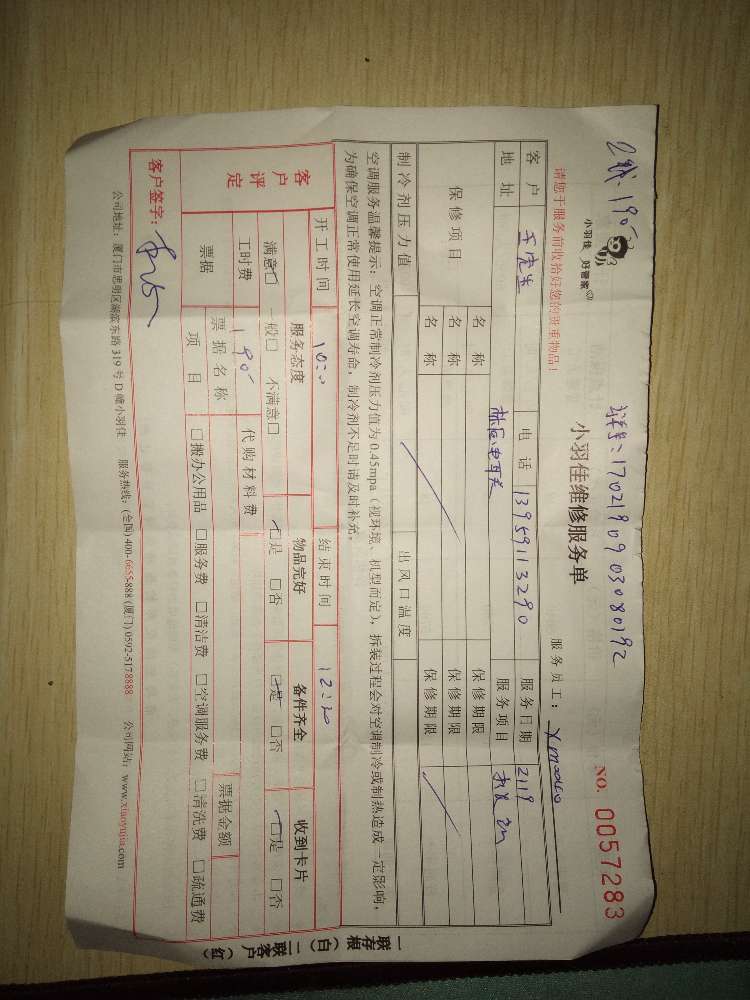 小羽佳 好管家
请您于服务前收拾好您的贵重物品！
小羽佳维修服务单
NO. 0057283
服务员工：
客户 王先生 电话 13959113290 服务日期 2119
地址 服务项目
保修项目 名称 保修期限
名称 保修期限
名称 保修期限
制冷剂压力值 出风口温度
空调服务温馨提示：空调正常制冷剂压力值为0.45mpa（视环境、机型而定），拆装过程会对空调制冷或制热造成一定影响，
为确保空调正常使用延长空调寿命，制冷剂不足时请及时补充。
开工时间 结束时间
客户评定
服务态度 物品完好 备件齐全 收到卡片
满意□ 一般□ 不满意□ □是 □否 □是 □否 □是 □否
工时费 190 代购材料费
票据 票据名称 票据金额
项目 □搬办公用品 □服务费 □清洁费 □空调服务费 □清洗费 □疏通费
客户签字：
公司地址：厦门市思明区湖滨东路319号D幢小羽佳 服务热线：(全国)400-6655-888 (厦门)0592-5178888 公司网站：www.xiaoyujia.com
一联存根（白）二联客户（红）